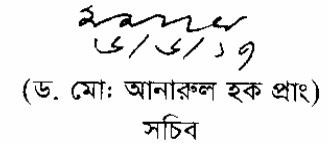 ৬/৬/১৭
(ড. মো: আনারুল হক প্রাং)
সচিব